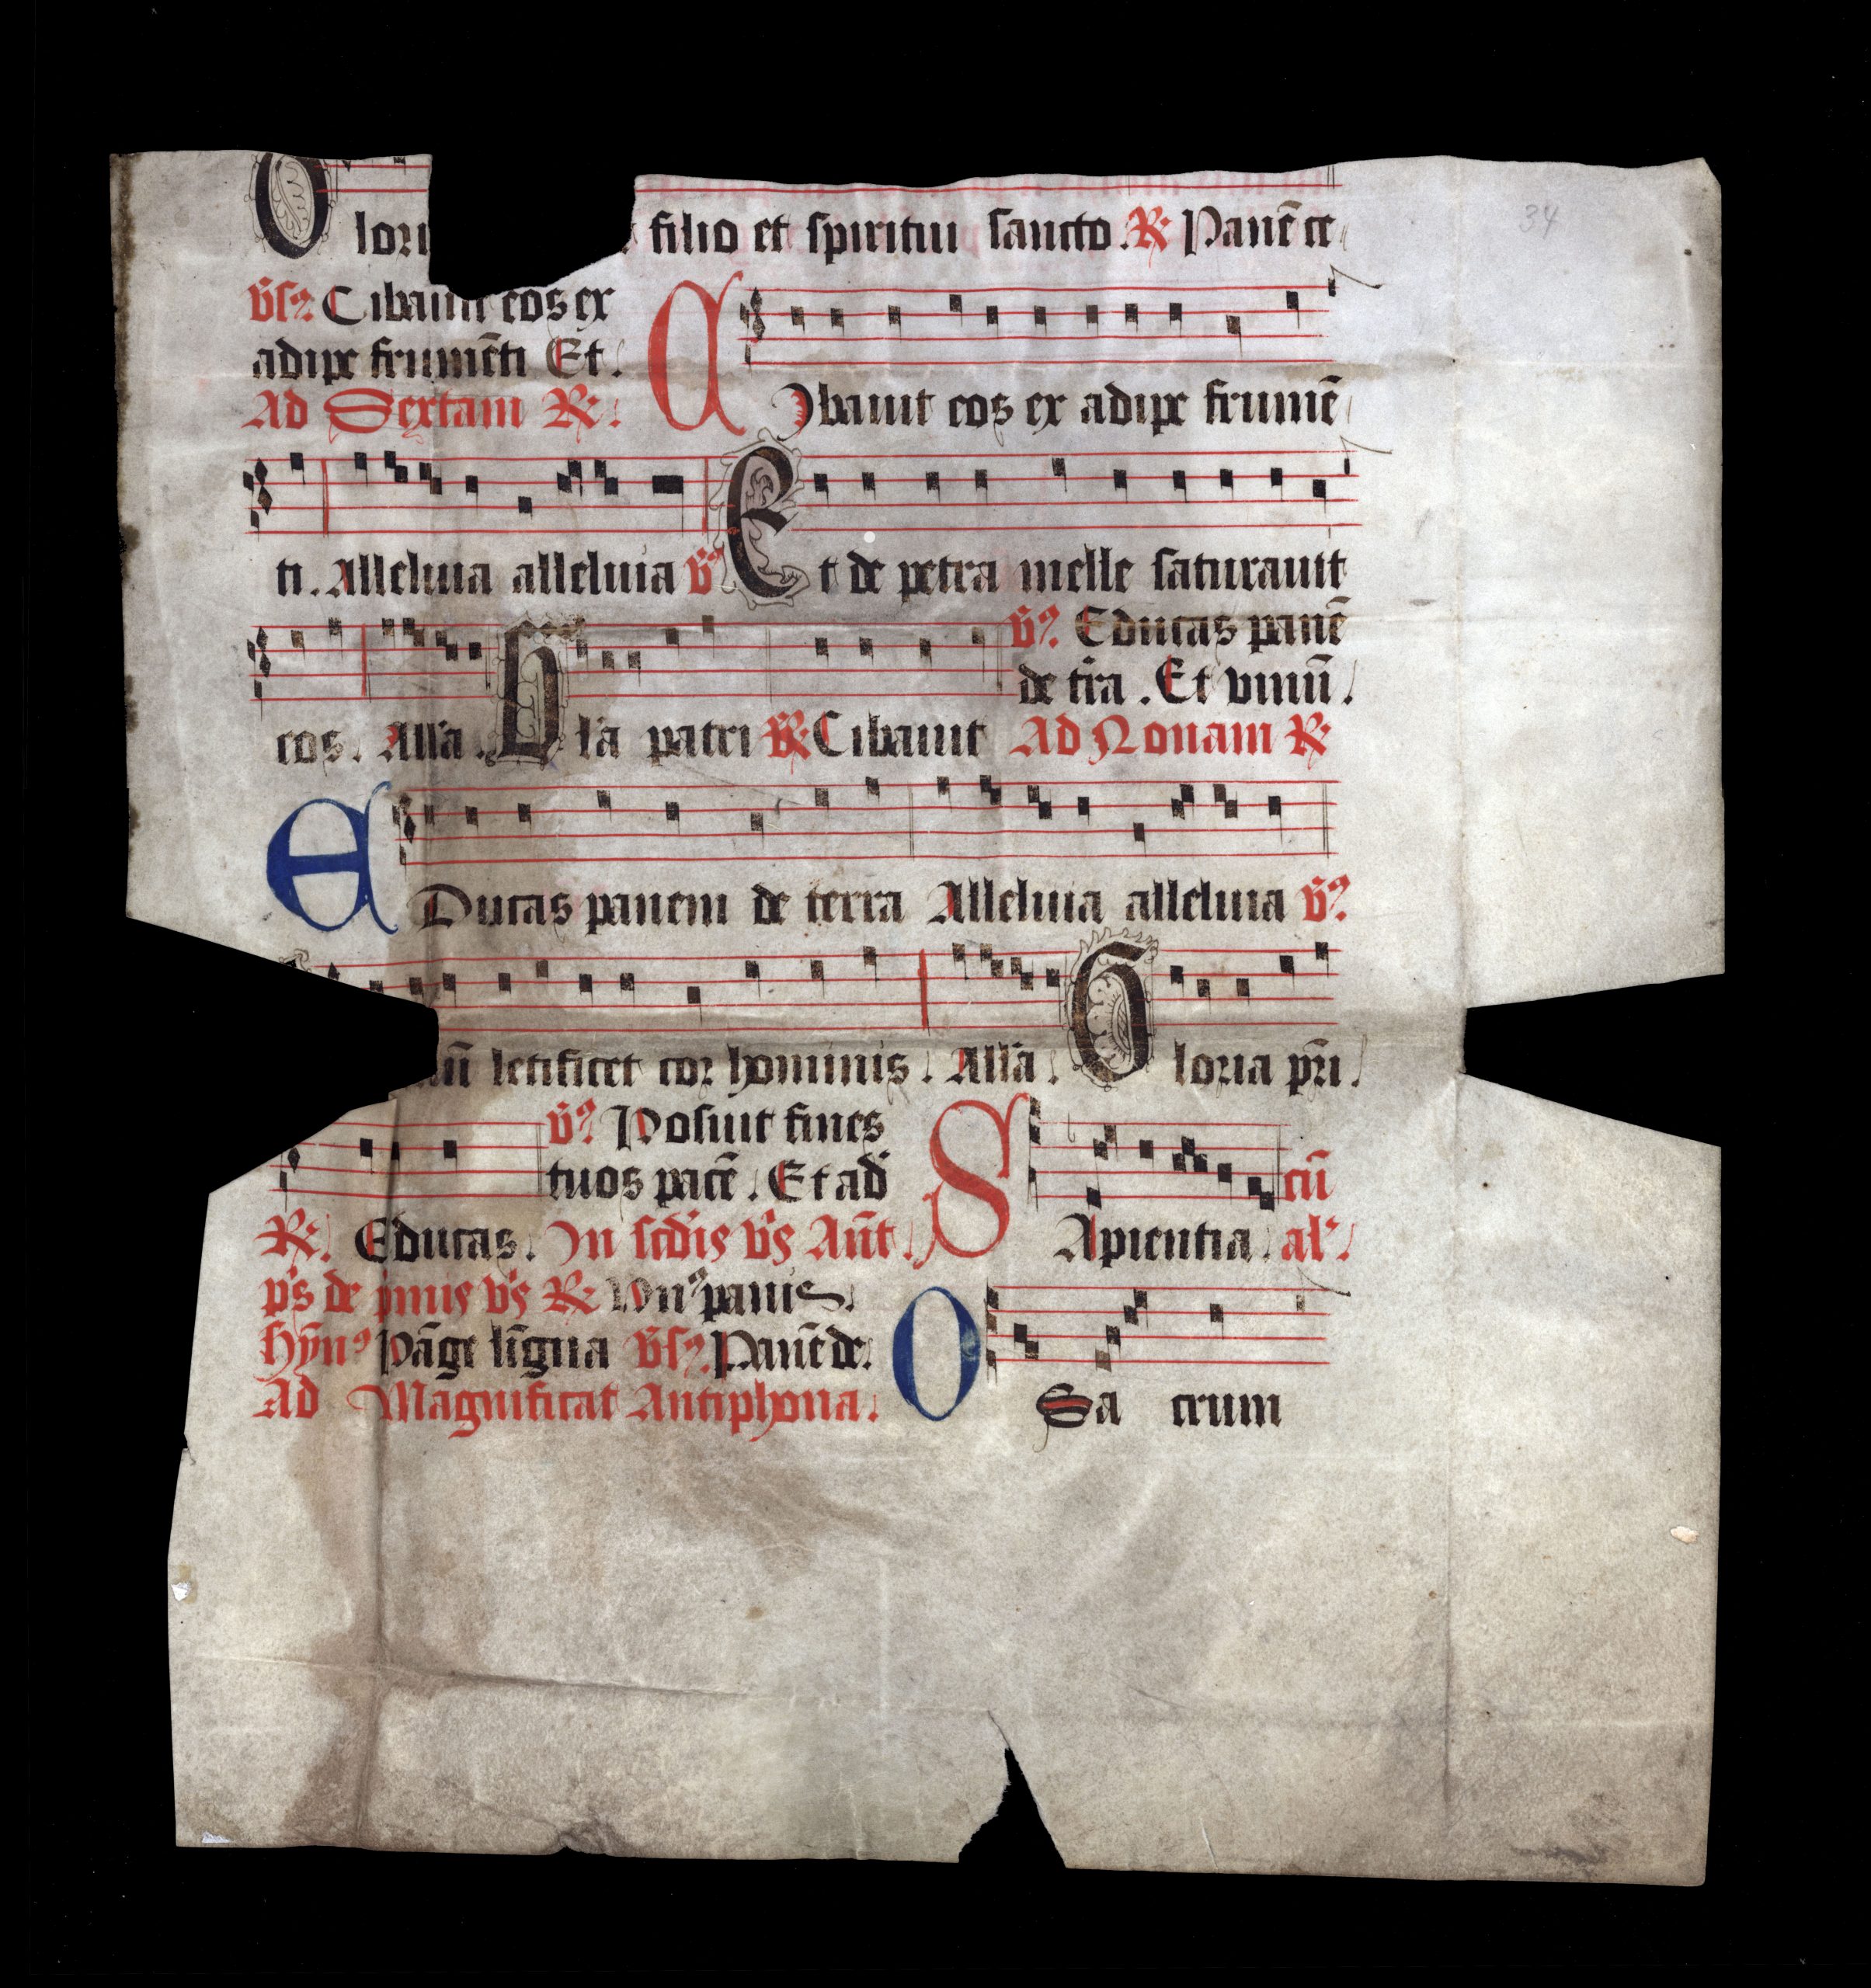 Glori filio et spiritui sancto. R. Panē ce
v̄s. Cibauit eos ex
adipe frumēti Et.
Ad Sextam R.
CIbauit eos ex adipe frumē
ti. Alleluia alleluia v̄. Et de petra melle saturauit
eos. Alla. Gla patri R. Cibauit
v̄. Educas panē
de tra. Et vinū.
Ad Nonam R.
EDucas panem de terra Alleluia alleluia v̄.
nū letificet cor hominis. Alla. Gloria pri.
v̄. Posuit fines
tuos pacē. Et ad
R. Educas. In scdis vs Ant.
SApientia. cū al.
ps de pmis vs R. Vnꝰ panis
Hynꝰ Pāge līgua v̄s. Panē de.
Ad Magnificat Antiphona.
O Sacrum
34